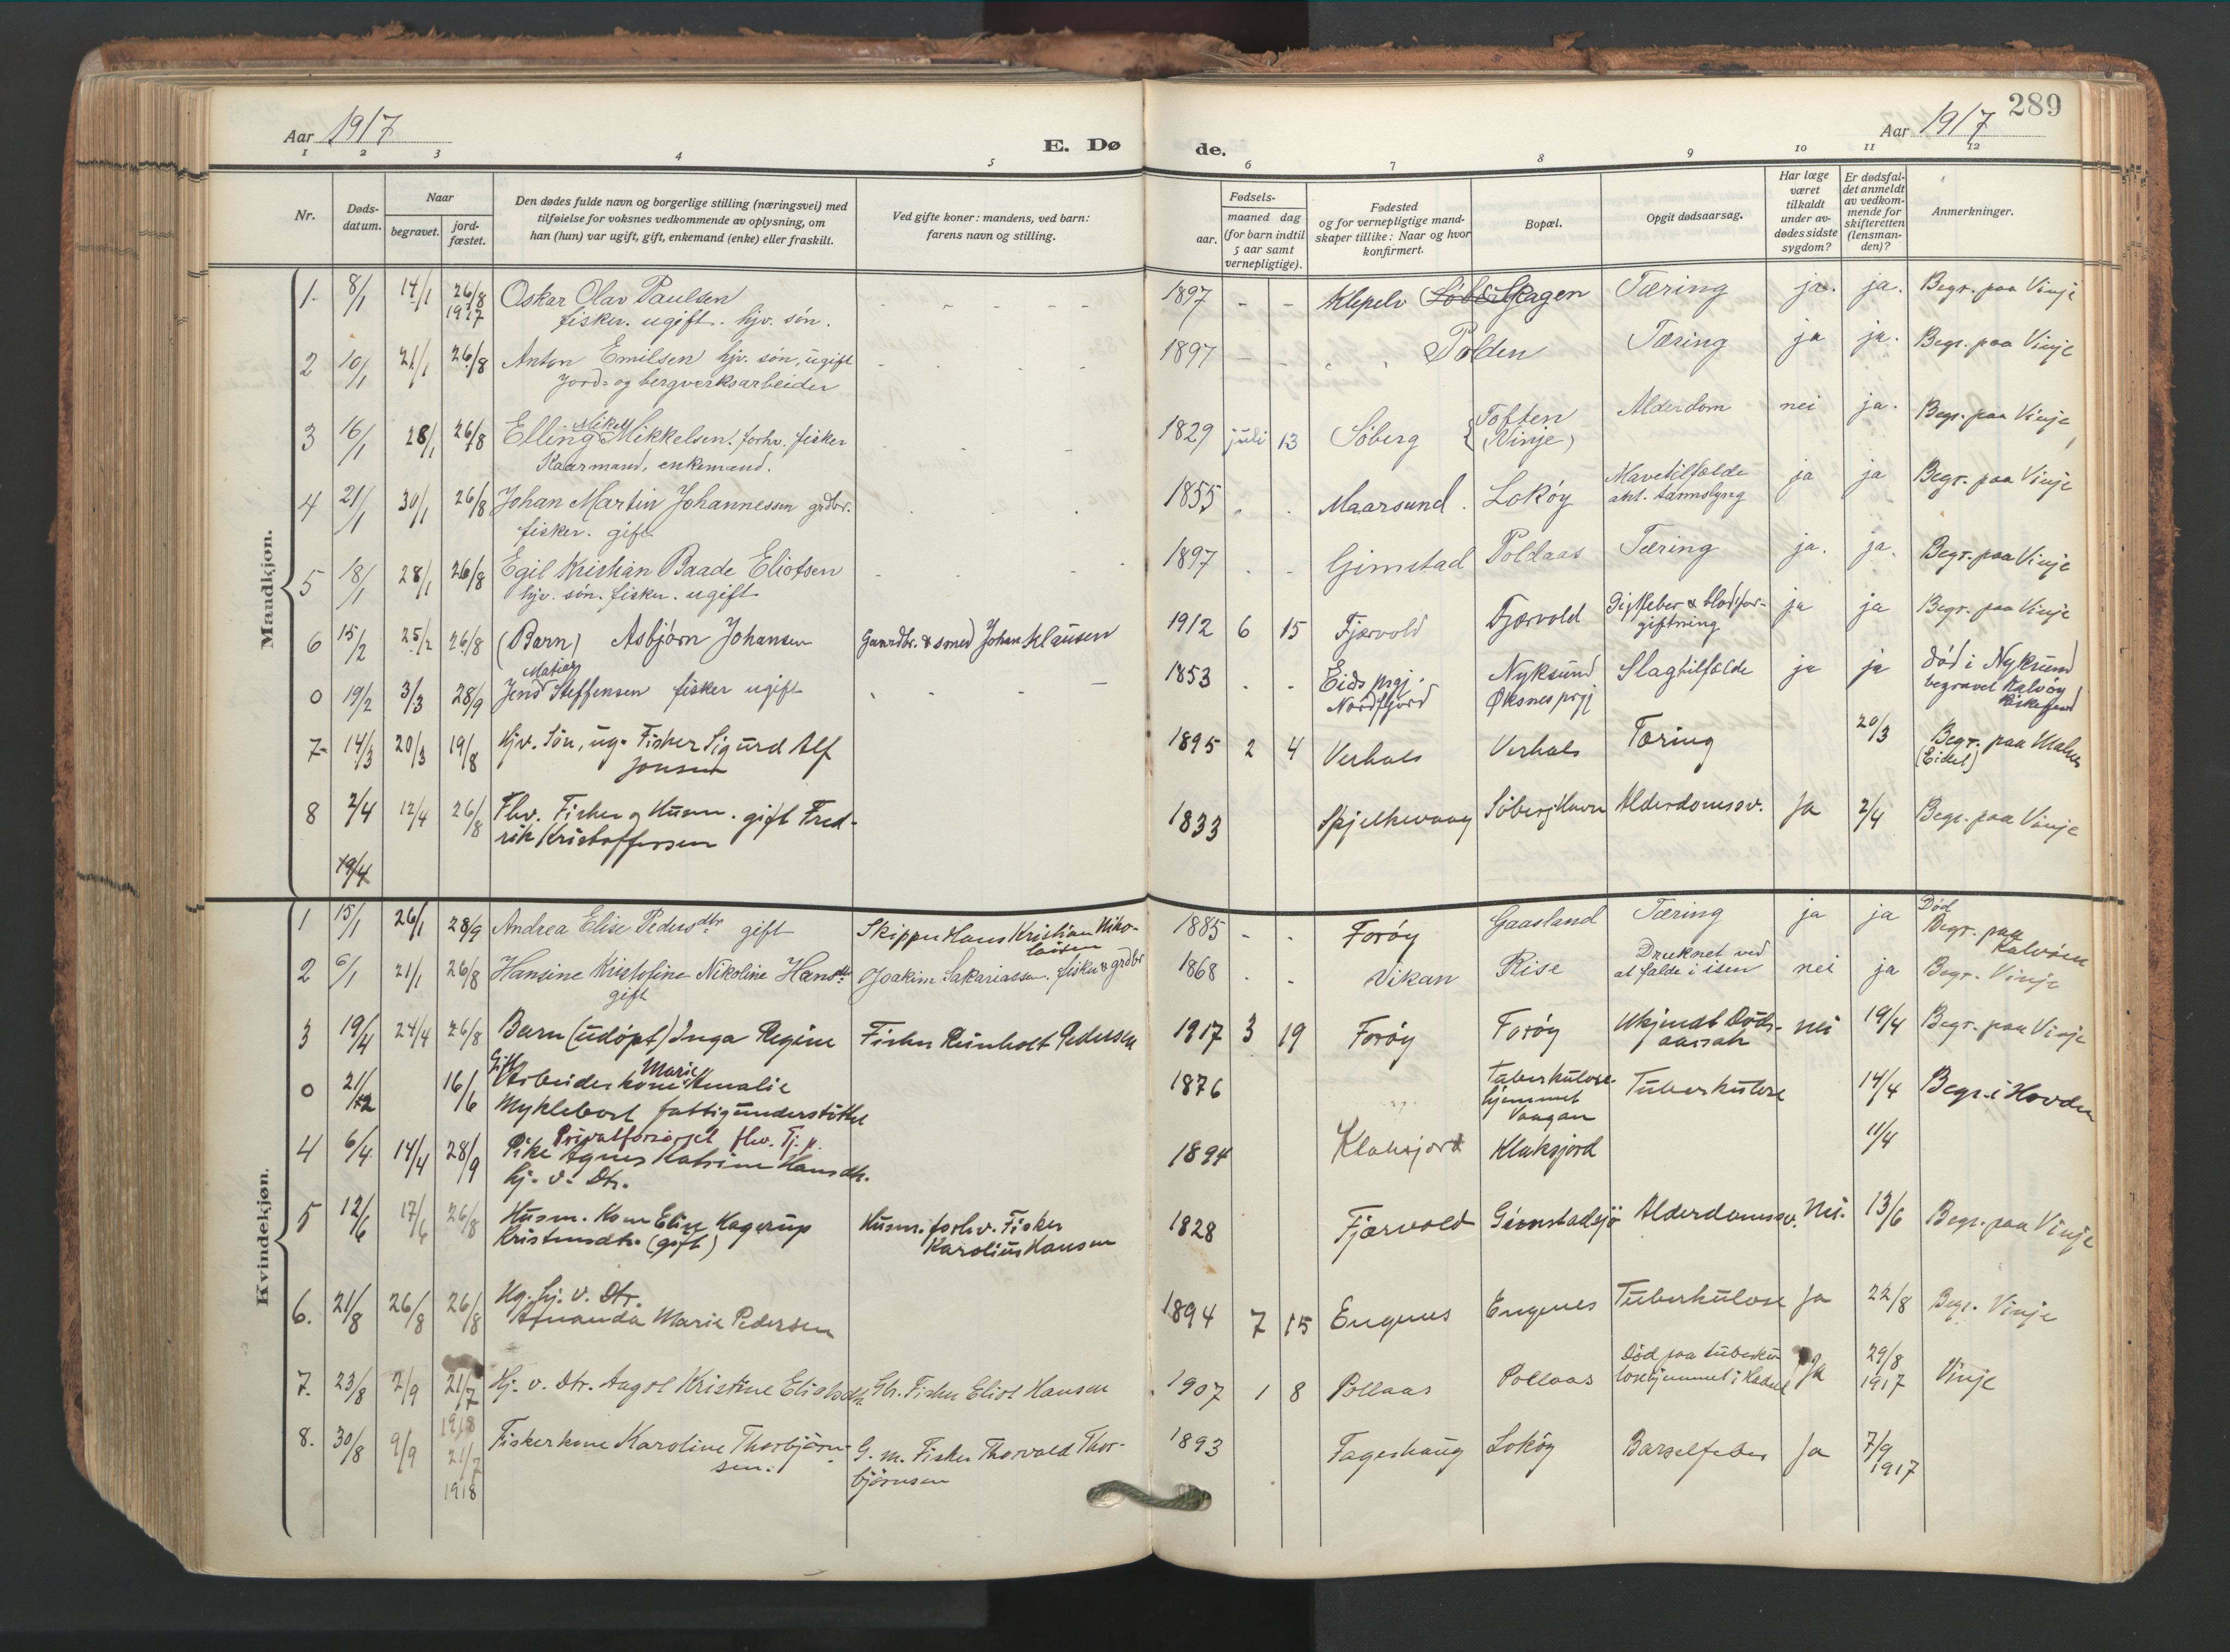 289
Aar 1917
E. Dø
de.
Aar 1917
1 2 3 4 5 6 7 8 9 10 11 12
Nr.
Døds-
datum.
Naar
begravet.
jord-
fæstet.
Den dødes fulde navn og borgerlige stilling (næringsvei) med
tilføielse for voksnes vedkommende av oplysning, om
han (hun) var ugift, gift, enkemand (enke) eller fraskilt.
Ved gifte koner: mandens, ved barn:
farens navn og stilling.
Fødsels-
aar.
maaned dag
(for barn indtil
5 aar samt
vernepligtige).
Fødested
og for vernepligtige mand-
skaper tillike: Naar og hvor
konfirmert.
Bopæl.
Opgit dødsaarsag.
Har læge
været
tilkaldt
under av-
dødes sidste
sygdom?
Er dødsfal-
det anmeldt
av vedkom-
mende for
skifteretten
(lensman-
den)?
Anmerkninger.
Mandkjøn.
1. 8/1 14/1 26/8 Oskar Olav Paulsen 1897 - - Klepelv Skagen Tæring ja. ja. Begr. paa Vinje
1917 fisker. ugift. hjv. søn.
2 10/1 21/1 26/8 Anton Emilsen hjv. søn, ugift 1897 Polden Tæring ja ja. Begr. paa Vinje
Jord- og bergverksarbeider
3 16/1 28/1 26/8 Elling Mikal Mikkelsen. forhv. fisker 1829 juli 13 Søberg Toften Alderdom nei ja. Begr. paa Vinje
Kaarmand, enkemand. (Vinje)
4 21/1 30/1 26/8 Johan Martin Johannessen grdbr. 1855 Maarsund Lokøy Mavetilfælde ja ja Begr. paa Vinje
fisker. gift.
5 18/1 28/1 26/8 Egil Kristian Baade Eliotsen 1897 Gimstad Poldaas Tæring ja. ja. Begr. paa Vinje
hjv. søn. fisker. ugift
6 15/2 25/2 26/8 (Barn) Asbjørn Johansen Gaardbr. & smed Johan Klausen 1912 6 15 Fjærvold Fjærvold Gigtfeber & blodfor- ja ja Begr. paa Vinje
giftning
0 19/2 3/3 28/9 Jens Steffensen fisker ugift 1853 Eids prgj. Nyksund Slagtilfælde ja ja død i Nyksund
Nordfjord Øksnes prgj begravet Kalvøy
Kirkegaard
7 14/3 20/3 19/8 Hjv. Søn, ug. Fisker Sigurd Alf 1895 2 4 Verhals Verhals Tæring 20/3 Begr. paa Malnes
Jonsen (Eidet)
8 2/4 12/4 26/8 Fhv. Fisker og Husm. gift Fred- 1833 Spjelkevaag Søberg Havn Alderdomssv. Ja 2/4 Begr. paa Vinje
rik Kristoffersen
19/4
Kvindekjøn.
1 15/1 26/1 28/9 Andrea Elise Pedersdtr gift Skipper Hans Kristian Niko- 1885 - - Forøy Gaasland Tæring ja ja Død
laisen Begr. paa
Kalvøen
2 6/1 21/1 26/8 Hansine Kristofine Nikoline Hansdtr Joakim Sakariassen. fisker & grdbr 1868 Vikan Rise Druknet ved nei ja Begr. Vinje
gift at falde i isen
3 19/4 24/4 26/8 Barn (udøpt) Inga Regine Fisker Reinholt Pedersen 1917 3 19 Forøy Forøy Ukjendt Døds- nei 19/4 Begr. paa Vinje
aarsak
0 21/12 16/6 Gift Arbeiderkone Marie Amalie 1876 Tuberkulose- Tuberkulose 14/4 Begr. i Hovden
Myklebort fattigunderstøttet hjemmet
Vaagan
Privatforsørget fhv. Tj. p.
4 6/4 14/4 28/9 Pike Agnes Katrine Hansdtr. 1894 Klaksjord Klaksjord 11/4
hj. v. Dtr.
5 12/6 17/6 26/8 Husm. Kone Elise Kagerup Husm. forhv. Fisker 1828 Fjærvold Gimstadsjø Alderdomssv. Nei. 13/6 Begr. paa Vinje
Kristensdtr. (gift) Karolius Hansen
6. 21/8 26/8 26/8 Ug. hj. v. Dtr. 1894 7 15 Engenes Engenes Tuberkulose Ja 22/8 Begr. Vinje
Amanda Marie Pedersen
7. 23/8 2/9 21/7 Hj. v. Dtr. Aagot Kristine Eliotsdtr. Gbr. Fisker Eliot Hansen 1907 1 8 Pollaas Pollaas Død paa tuberku- Ja 29/8 Vinje
1918 losehjemmet i Hadsel 1917
8. 30/8 9/9 21/7 Fiskerkone Karoline Thorbjørn- G. m. Fisker Thorvald Thor- 1893 Fageshaug Lokøy Barselfeber Ja 7/9
1918 sen. bjørnsen 1917